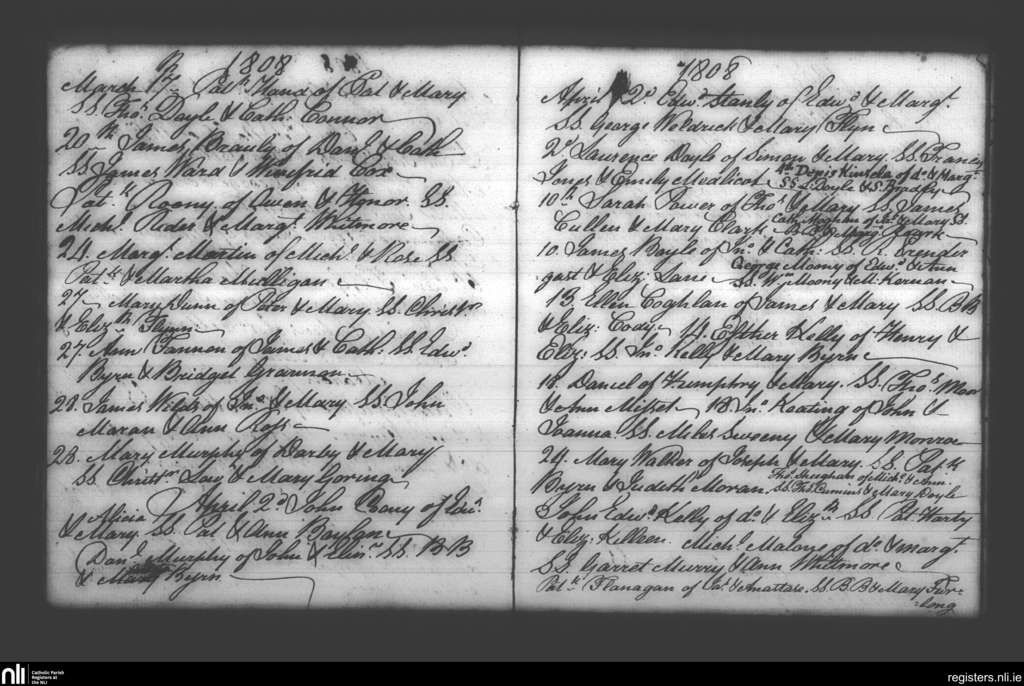 B 1808
March 17 Patk. Hand of Pat & Mary
SS. Thos. Doyle & Cath: Connor
20th James Brauly of Danl. & Cath
SS James Ward & Winefrid Cox
Patk. Roony of Owen & Honor. SS.
Michl. & Margt. Whitmore
24. Margt. Martin of Michl. & Rose SS
Patk. & Martha Mulligan
27 Mary Dunn of Peter & Mary SS. Christr.
& Elizth. Flynn
27. Ann Fannon of James & Cath: SS. Edwd.
Byrn & Bridget
28. James of Jno. & Mary SS John
Maran & Ann Ross
28. Mary Murphy of Darby & Mary
SS. Christr. Loy & Mary Goring
April 2d. John of Edwd.
& Alicia
& Mary SS. Pat & Ann Boylan
Danl. Murphy of John & SS. BB
& Mary Byrn
1808
April 2d. Edwd. Stanly of Edwd. & Margt.
SS. George & Mary Flyn
2d. Laurence Doyle of Simon & Mary SS. Francis
4th Denis Kinsela of do. & Margt.
Jones & Emily Medlicot SS L. Doyle & S. Bradley
10th Sarah Power of Thos. & Mary SS James
Cath. of & Mary SS.
Cullen & Mary Clark B B & Mary
10. James Boyle of Jno. & Cath: SS. R. Prender
George Moony of Edwd. & Ann
gast & Eliz: Lane SS. Wm. Moony & M. Kernan
13. Ellen Coghlan of James & Mary SS. BB
& Eliz: Cody. 14. Esther Kelly of Henry &
Eliz: SS. Jno. Kelly & Mary Byrn
18. Daniel of Humphry & Mary. SS. Thos. Moor
& Ann 18. Jno. Keating of John &
Joanna. SS. Miles Sweeny & Mary Monroe
24. Mary Walker of Joseph & Mary. SS. Patk.
Thos. of Michl. & Ann.
Byrn & Judith Moran. SS. Thos. Cumins & Mary Doyle
John Edwd. Kelly of do. & Elizth. SS Pat. Harty
& Eliz: Killeen. Michl. Malone of do. & Margt.
SS. Garret Murry & Ann Whitmore
Patk. Flanagan of Jas. & Anastase. SS. B.B & Mary Fur-
-long
nli Catholic Parish
Registers at
the NLI
registers.nli.ie